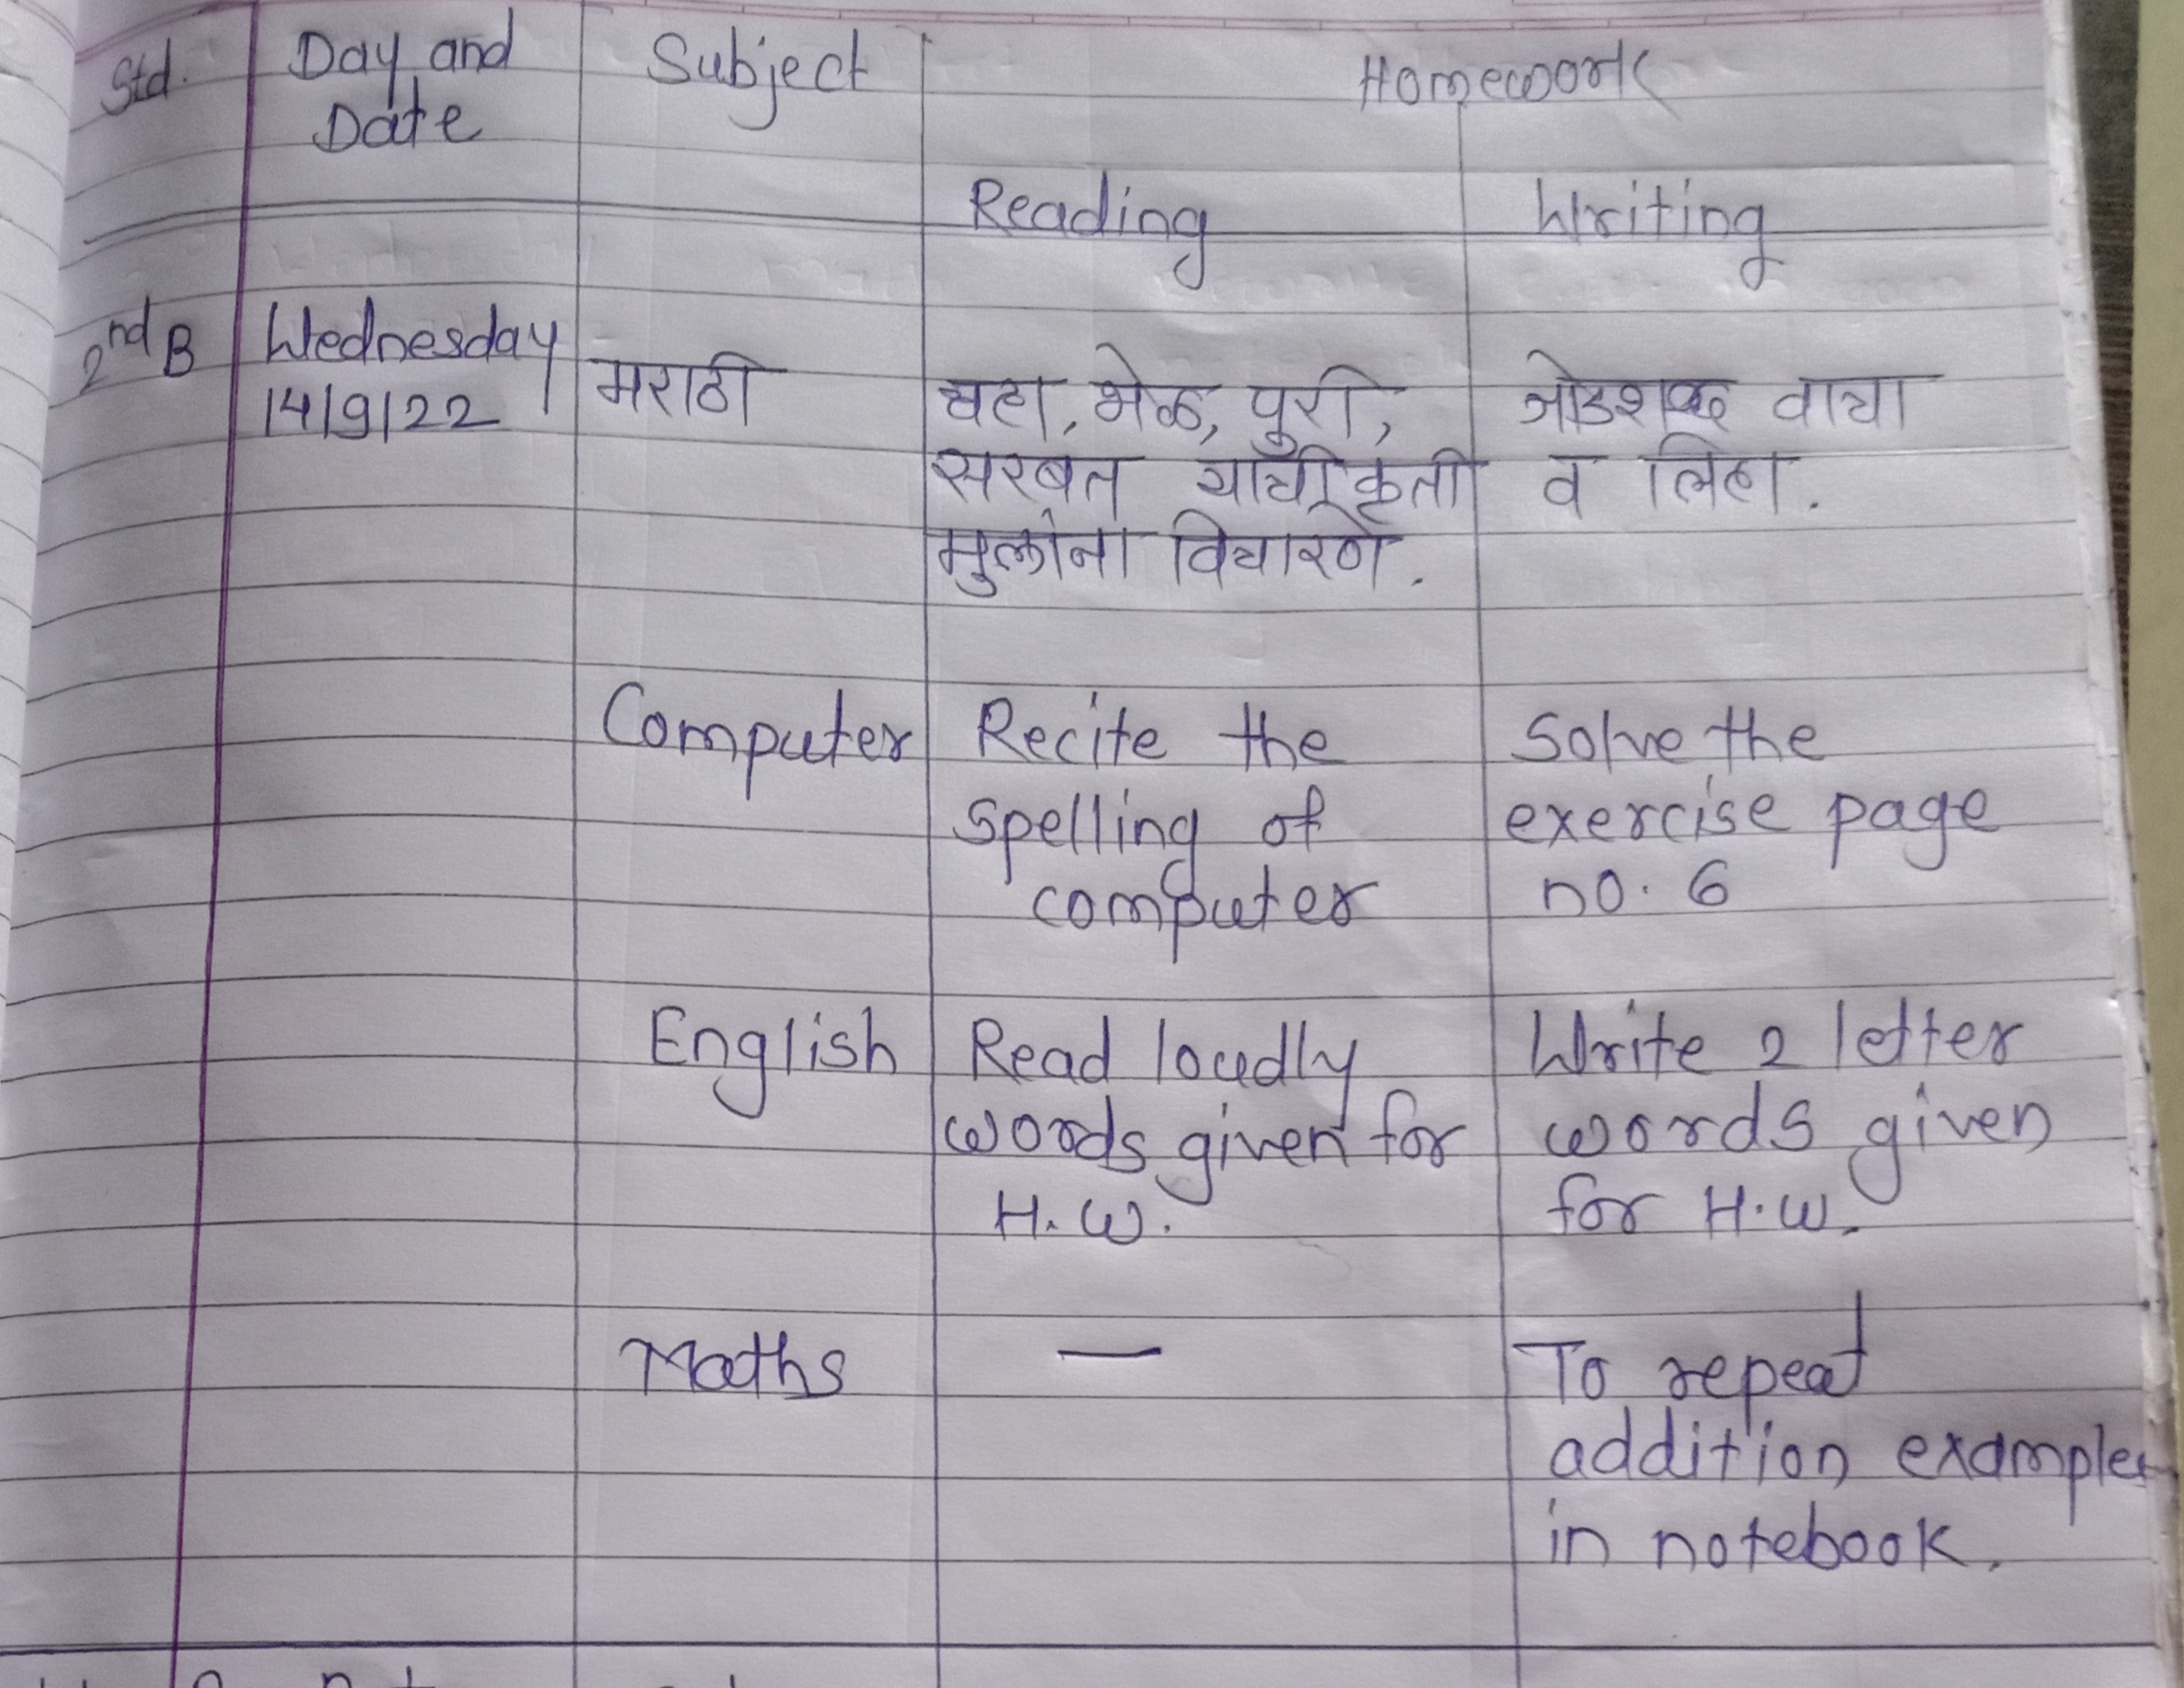 Std. Day and Subject Homework
Date
Reading Writing
2nd B Wednesday
14/9/22 मराठी चहा, भेळ, पुरी, जोडशब्द वाचा
सरबत यांची कृती व लिहा.
मुलांना विचारणे.
Computer Recite the Solve the
spelling of exercise page
computer no. 6
English Read loudly Write 2 letter
words given for words given
H.W. for H.W.
Maths — To repeat
addition examples
in notebook.